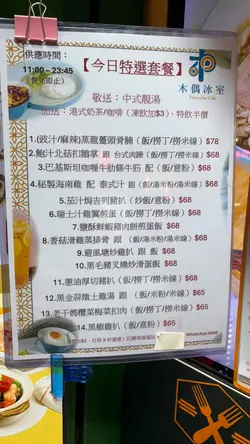 供應時間：
11:00 – 23:45
(售完即止)
【今日特選套餐】
木偶冰室
敬送：中式靚湯
加送：港式奶茶/咖啡（凍飲加$3)、特飲半價
1.(豉汁/麻辣)蒸龍躉頭骨腩（飯/撈丁/撈米線）$78
2.鮑汁北菇扣鵝掌 跟 台式肉燥（飯/撈丁/撈米線）$68
3.巴基斯坦咖喱牛肋條牛筋（飯/意粉）$68
4.秘製海南雞 配 泰式汁 跟（飯/湯米粉/湯米線）$68
5.茄汁焗吉列豬扒（炒飯/意粉）$68
6.瑞士汁雞翼煎蛋（飯/撈丁/撈米線）$68
7.鹽酥鮮蝦豬肉餅煎蛋飯 $68
8.香菇滑雞蒸排骨 跟（飯/湯米粉/湯米線）$68
9.避風塘炒雞扒 跟 飯 $68
10.黑毛豬叉燒炒滑蛋飯 $68
11.蔥油厚切豬扒（飯/撈丁/撈米線）$68
12.黑金蒜燉土雞湯 跟（飯/米粉/米線）$65
13.老干媽欖菜梅菜扣肉（飯/撈丁/撈米線）$65
14.黑椒雞扒（飯/意粉）$65